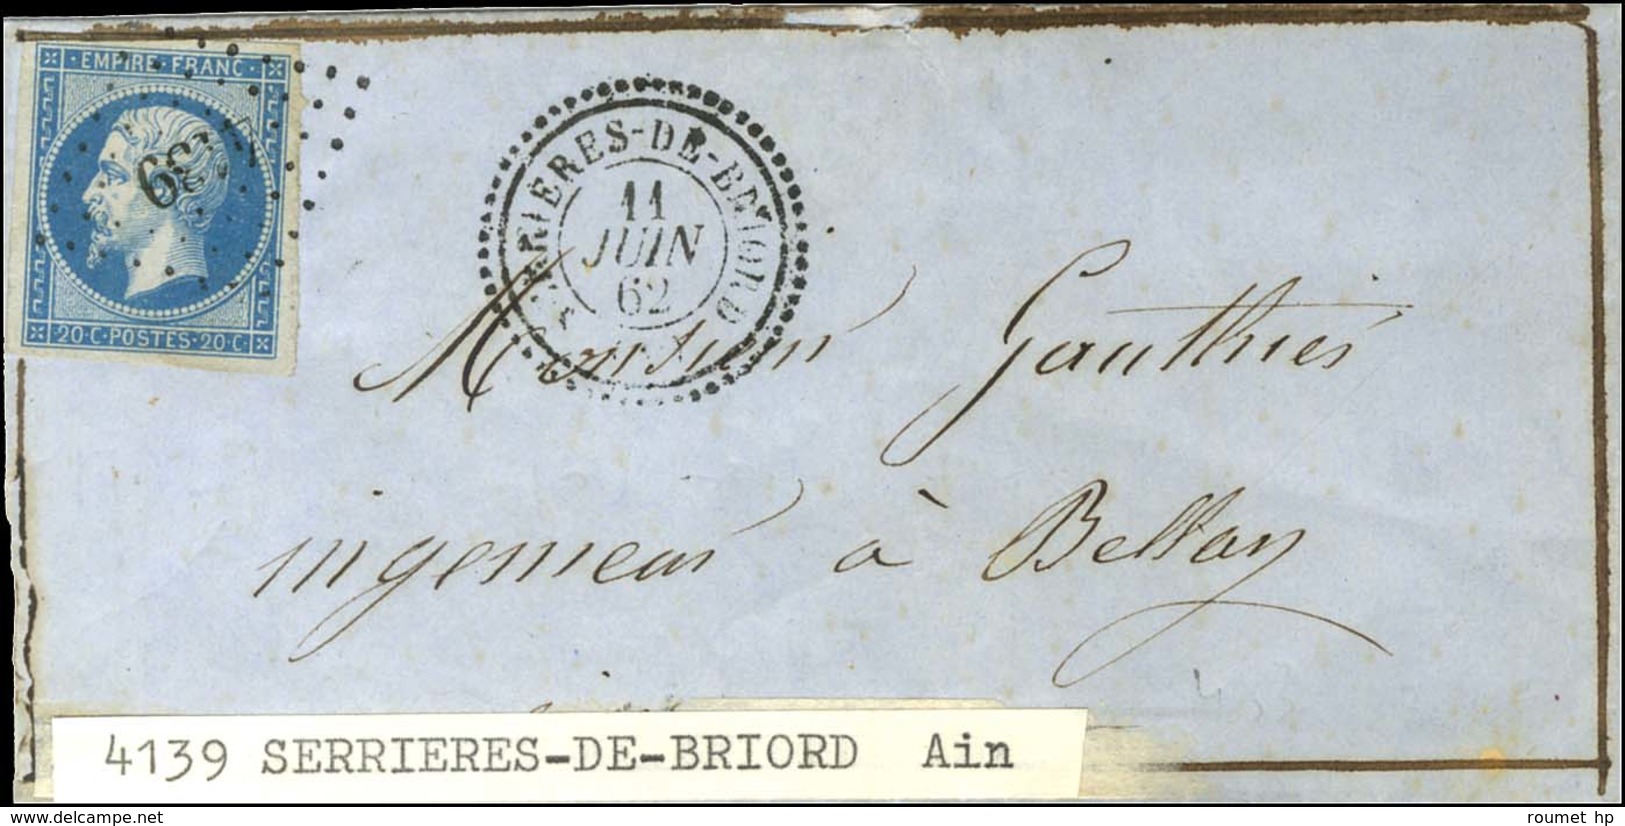 EMPIRE FRANC
20·C·POSTES·20·C
4139
SERRIERES-DE-BRIORD
11
JUIN
62
Monsieur Gauthier
ingenieur à Bellay
4139 SERRIERES-DE-BRIORD Ain
roumet hp